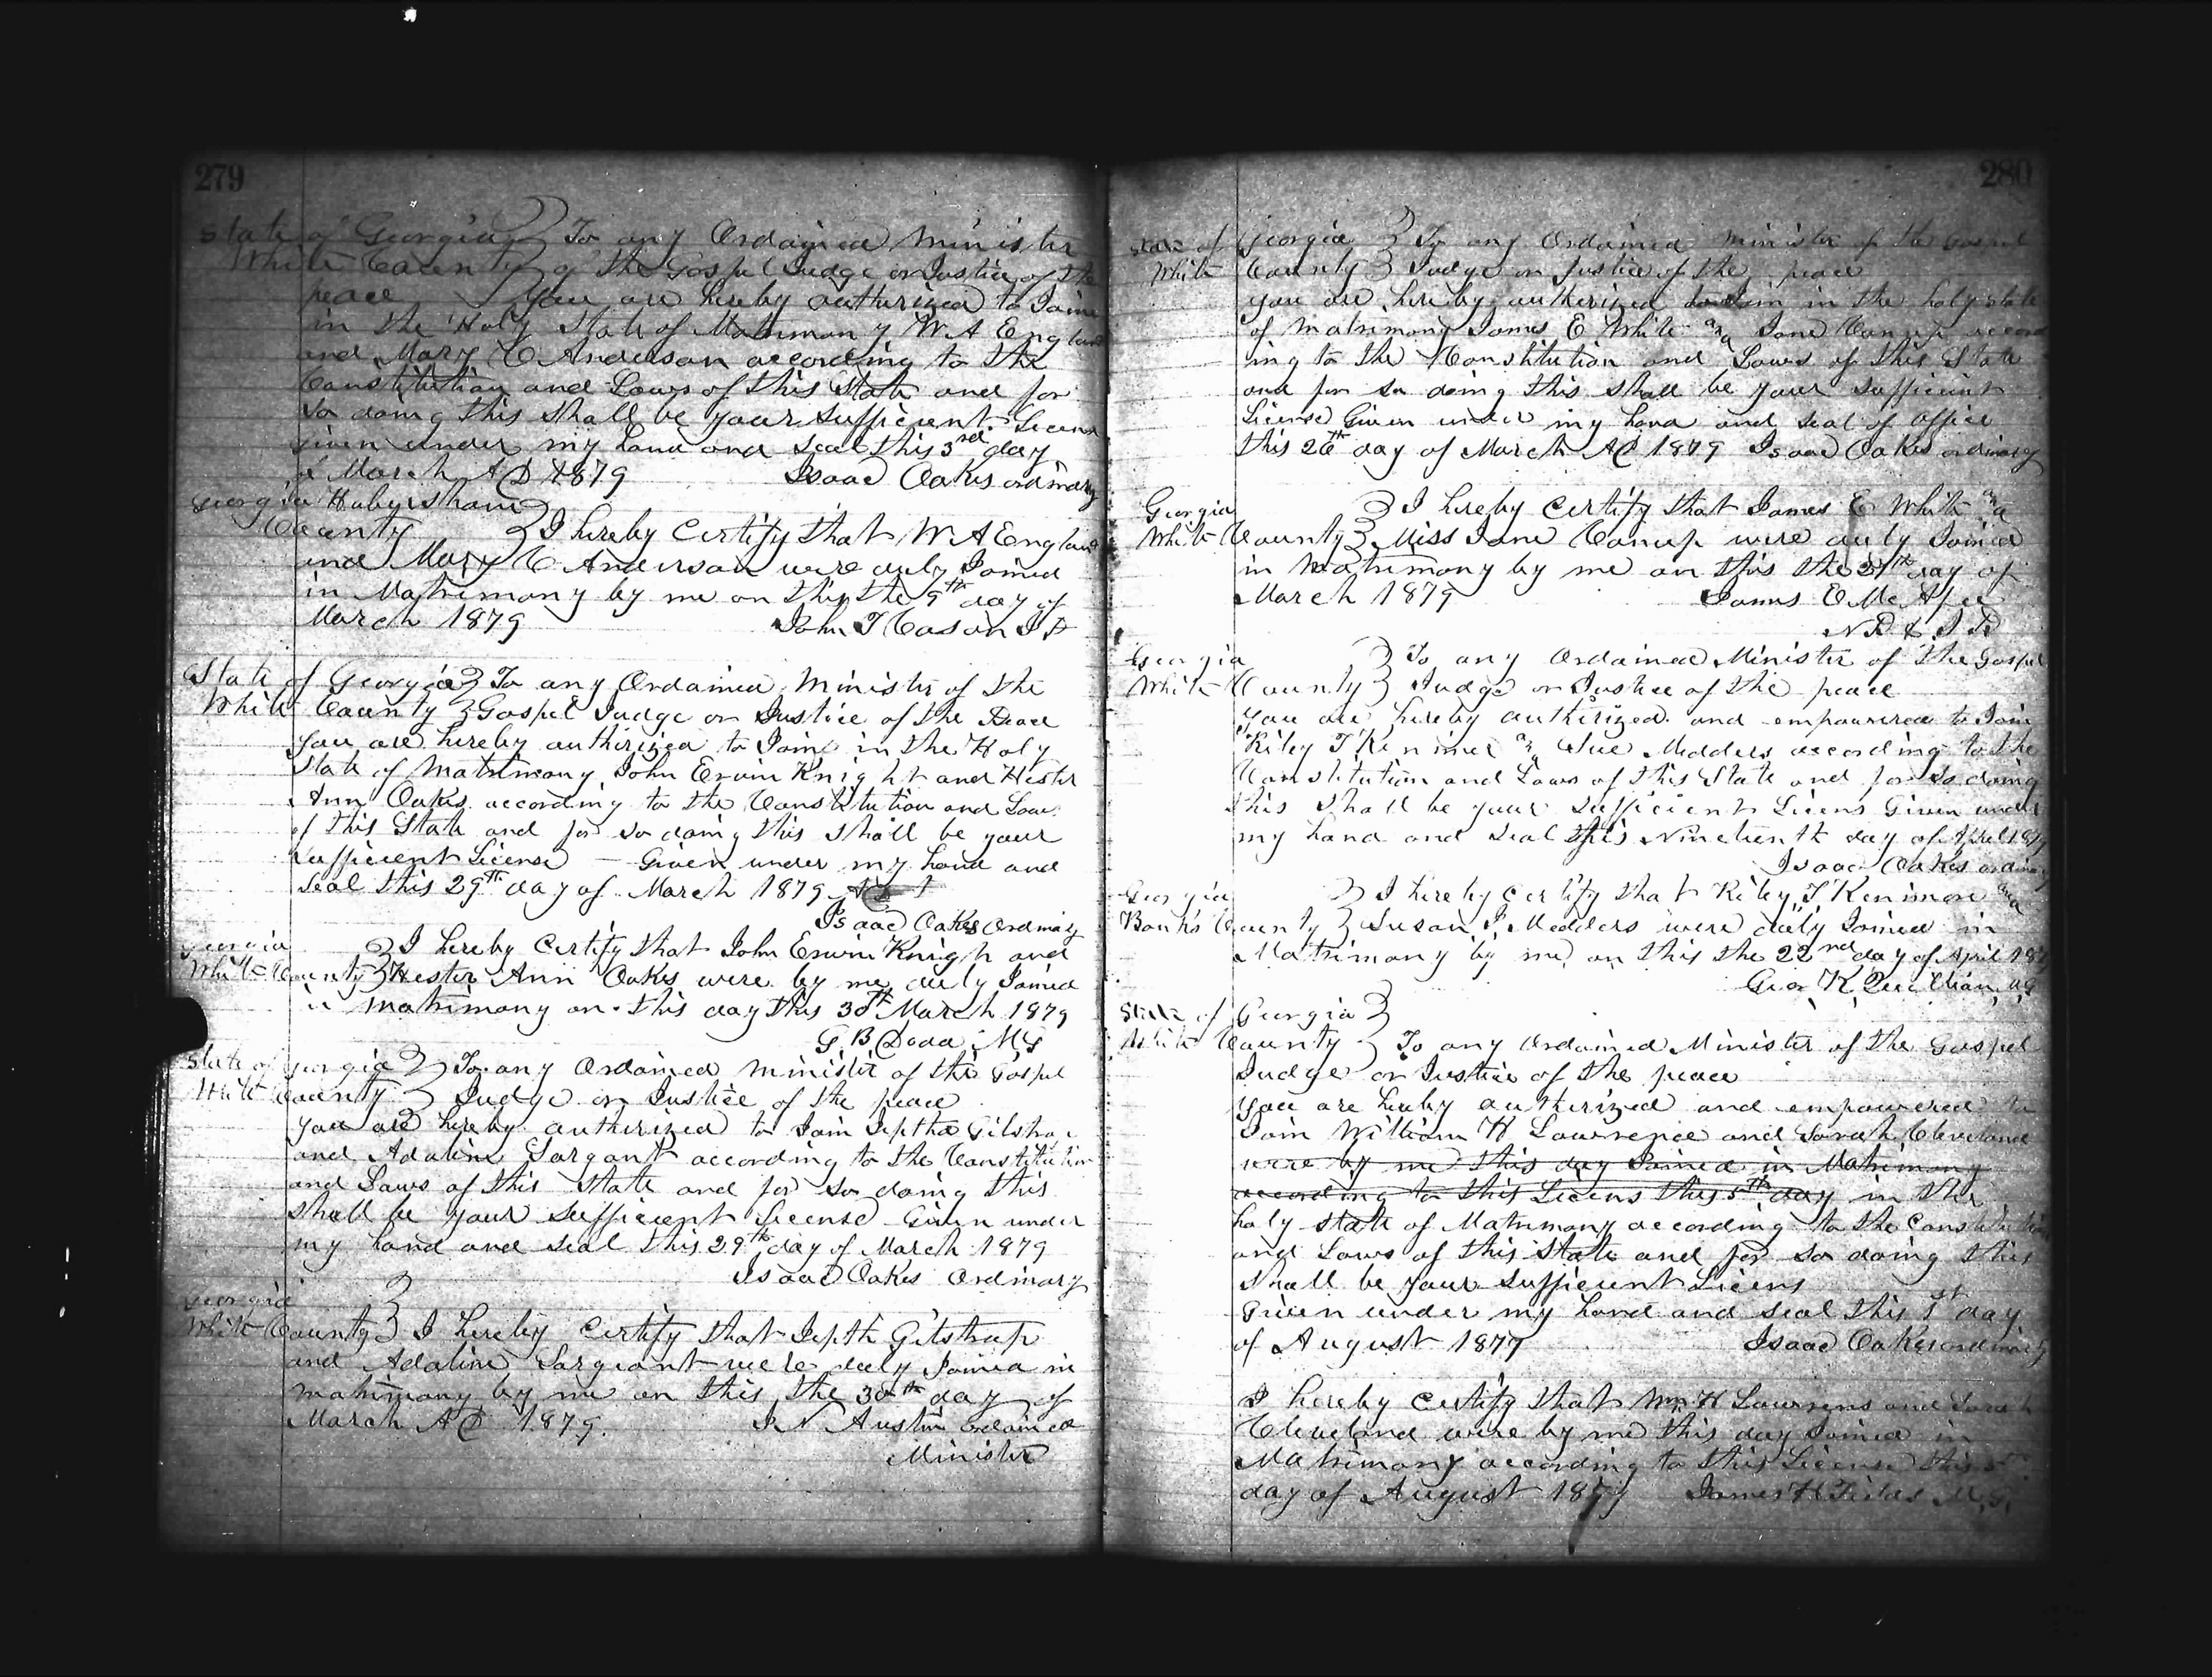 279
State of Georgia } To any Ordained Minister
White County } of the Gospel Judge or Justice of the
peace You are hereby authorized to Join
in the Holy State of Matrimony W. A England
and Mary C Anderson according to the
Constitution and Laws of this State and for
So doing this Shall be your Sufficient Licens
given under my hand and Seal this 3rd day
of March AD 1879 Isaac Oakes ordinary
Georgia Habersham
County } I hereby Certify that W. A England
and Mary C Anderson were duly Joined
in Matrimony by me on this the 9th day of
March 1879 John T Cason J P
State of Georgia } To any Ordained Minister of the
White County } Gospel Judge or Justice of the Peace
You are hereby authorized to Join in the Holy
State of Matrimony John Ervin Knight and Hester
Ann Oakes according to the Constitution and Laws
of this State and for So doing this Shall be your
Sufficient License — Given under my hand and
Seal this 29th day of March 1879
Isaac Oakes Ordinary
Georgia } I hereby Certify that John Erwin Knigh and
White County } Hester Ann Oakes were by me duly Joined
in matrimony on this day this 30th March 1879
G B Dodd MG
State of Georgia } To any Ordained Minister of the Gospel
White County } Judge or Justice of the peace
You are hereby authorized to Join Jeptha Gilstrap
and Adaline Sargant according to the Constitution
and Laws of this State and for So doing this
Shall be your Sufficient License Given under
my hand and Seal this 29th day of March 1879
Isaac Oakes Ordinary
Georgia }
White County } I hereby Certify that Jepth Gilstrap
and Adaline Sargeant were duly Joined in
matrimony by me on this the 30th day of
March AD 1879. J N Austin Ordained
Minister
280
State of Georgia } To any Ordained Minister of the Gospel
White County } Judge or Justice of the peace
You are hereby authorized to Join in the holy State
of Matrimony James E White and Jane Canup accord
ing to the Constitution and Laws of this State
and for So doing this Shall be your Sufficient
License Given under my hand and Seal of office
this 26th day of March AD 1879 Isaac Oakes ordinary
Georgia } I hereby Certify that James E White and
White County } Miss Jane Canup were duly Joined
in Matrimony by me on this the 27th day of
March 1879 James E McAfee
N P & J P
Georgia } To any Ordained Minister of the Gospel
White County } Judge or Justice of the peace
You are hereby authorized and empowered to Join
Riley T Kenimer and Sue Medders according to the
Constitution and Laws of this State and for So doing
this Shall be your Sufficient Licens Given under
my hand and Seal this Nineteenth day of April 1879
Isaac Oakes ordinary
Georgia } I hereby Certify that Riley T Kenimore and
Banks County } Susan Medders were duly Joined in
Matrimony by me on this the 22nd day of April 187
Geo K Quillian MG
State of Georgia }
White County } To any Ordained Minister of the Gospel
Judge or Justice of the peace
You are hereby authorized and empowered to
Join William H Lawrence and Sarah Cleveland
were by me this day Joined in Matrimony
according to this Licens this 5th day in the
holy State of Matrimony according to the Constitution
and Laws of this State and for So doing this
Shall be your Sufficient Licens
Given under my hand and Seal this 1st day
of August 1877 Isaac Oakes ordinary
I hereby Certify that Wm H Lawrens and Sarah
Cleveland were by me this day Joined in
Matrimony according to this License this 5
day of August 1877 James H Fields M. G.